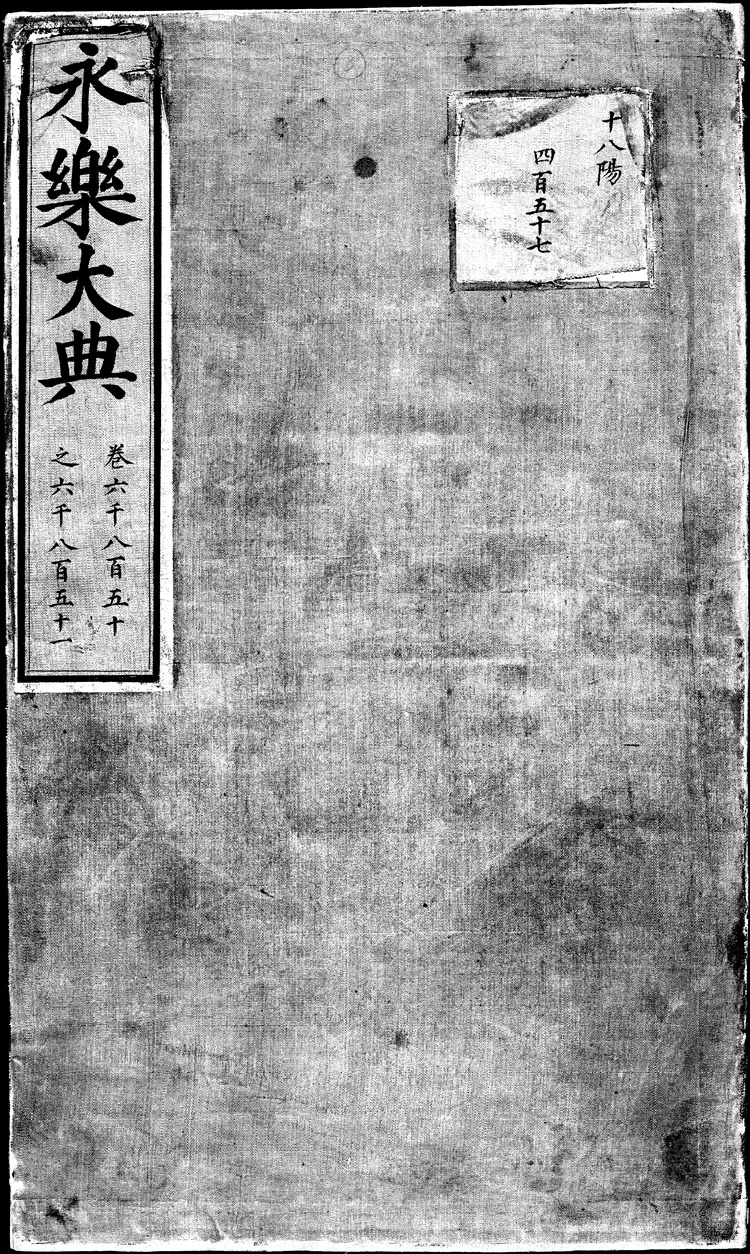 十八陽
四百五十七
永樂大典
卷六千八百五十
之六千八百五十一